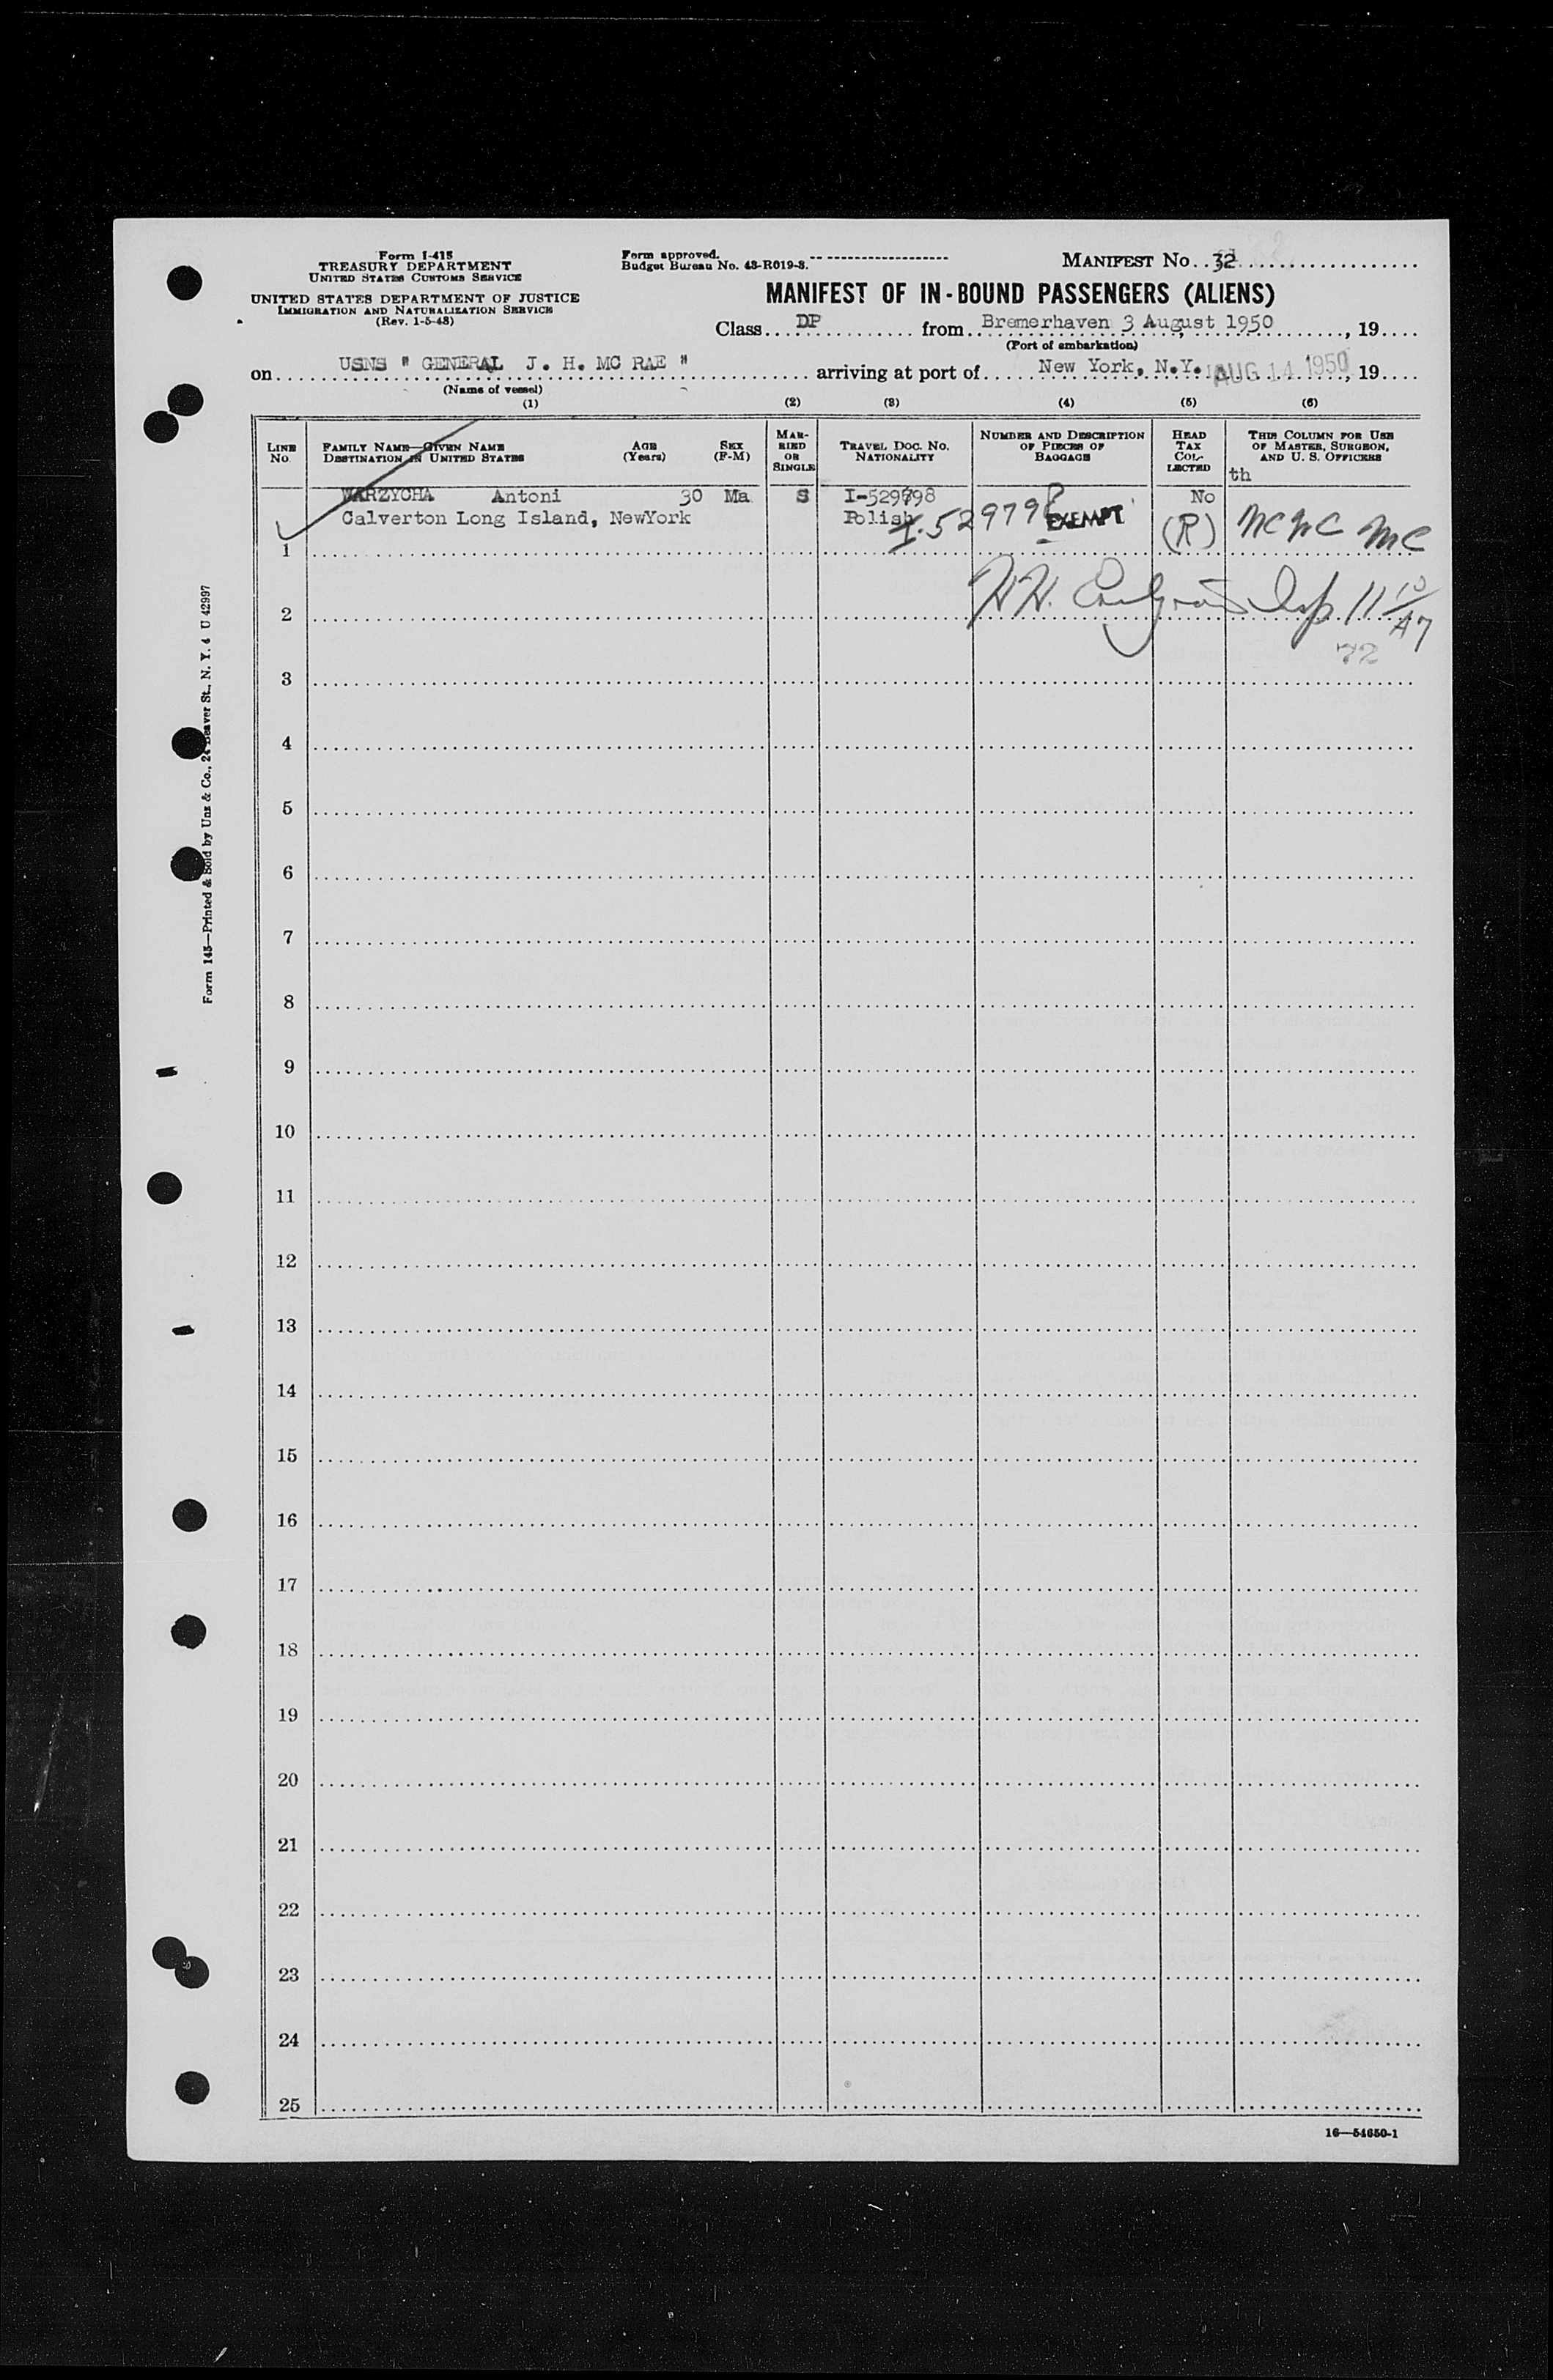 Form I-415
TREASURY DEPARTMENT
UNITED STATES CUSTOMS SERVICE
UNITED STATES DEPARTMENT OF JUSTICE
IMMIGRATION AND NATURALIZATION SERVICE
(Rev. 1-5-48)
Form approved.
Budget Bureau No. 43-R019-3.
MANIFEST No. 32
MANIFEST OF IN-BOUND PASSENGERS (ALIENS)
Class DP from Bremerhaven 3 August 1950, 19
(Port of embarkation)
on USNS " GENERAL J. H. MC RAE " arriving at port of New York, N.Y. AUG 14 1950, 19
(Name of vessel)
(1) (2) (3) (4) (5) (6)
LINE No. FAMILY NAME—GIVEN NAME DESTINATION IN UNITED STATES AGE (Years) SEX (F-M) MARRIED OR SINGLE TRAVEL DOC. No. NATIONALITY NUMBER AND DESCRIPTION OF PIECES OF BAGGAGE HEAD TAX COLLECTED THIS COLUMN FOR USE OF MASTER, SURGEON, AND U. S. OFFICERS
th
WARZYCHA Antoni 30 Ma S I-529798 No
Calverton Long Island, NewYork Polish I-529798 EXEMPT (R) NC NC MC
1
2
72
3
4
5
6
7
8
9
10
11
12
13
14
15
16
17
18
19
20
21
22
23
24
25
16—54650-1
Form 145—Printed & Sold by Unz & Co., 24 Beaver St., N. Y. 4 U 42997